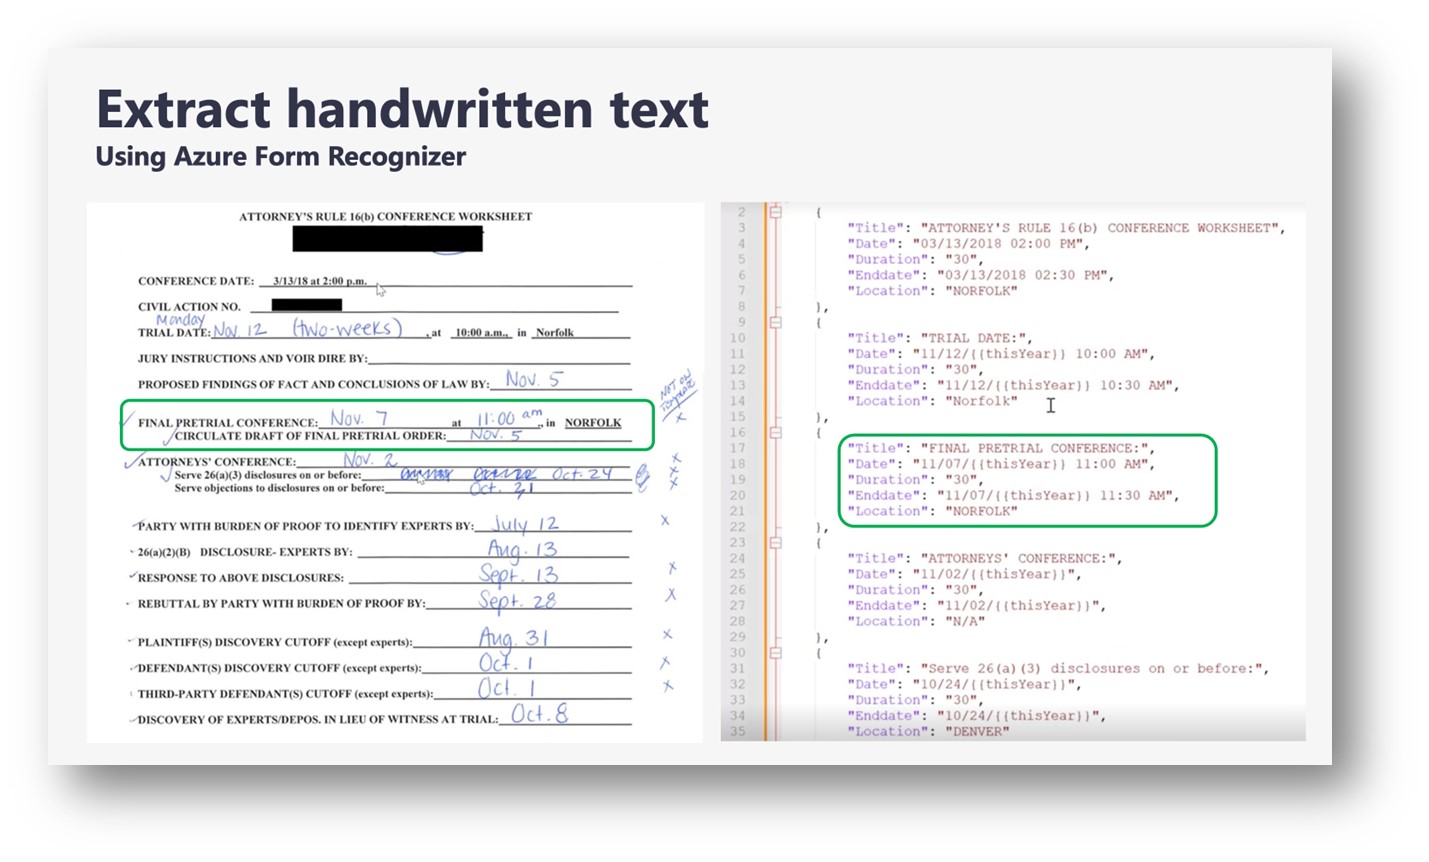 Extract handwritten text
Using Azure Form Recognizer
ATTORNEY'S RULE 16(b) CONFERENCE WORKSHEET
CONFERENCE DATE: 3/13/18 at 2:00 p.m.
CIVIL ACTION NO.
Monday
TRIAL DATE: Nov. 12 (two-weeks), at 10:00 a.m., in Norfolk
JURY INSTRUCTIONS AND VOIR DIRE BY:
PROPOSED FINDINGS OF FACT AND CONCLUSIONS OF LAW BY: Nov. 5
NOT ON
Template
x
FINAL PRETRIAL CONFERENCE: Nov. 7 at 11:00 am, in NORFOLK
CIRCULATE DRAFT OF FINAL PRETRIAL ORDER: Nov. 5
ATTORNEYS' CONFERENCE: Nov. 2 x
Serve 26(a)(3) disclosures on or before: Oct. 24 x
Serve objections to disclosures on or before: Oct. 31 x
PARTY WITH BURDEN OF PROOF TO IDENTIFY EXPERTS BY: July 12 x
26(a)(2)(B) DISCLOSURE- EXPERTS BY: Aug. 13
RESPONSE TO ABOVE DISCLOSURES: Sept. 13 x
REBUTTAL BY PARTY WITH BURDEN OF PROOF BY: Sept. 28 x
PLAINTIFF(S) DISCOVERY CUTOFF (except experts): Aug. 31 x
DEFENDANT(S) DISCOVERY CUTOFF (except experts): Oct. 1 x
THIRD-PARTY DEFENDANT(S) CUTOFF (except experts): Oct. 1 x
DISCOVERY OF EXPERTS/DEPOS. IN LIEU OF WITNESS AT TRIAL: Oct. 8
2 {
3 "Title": "ATTORNEY'S RULE 16(b) CONFERENCE WORKSHEET",
4 "Date": "03/13/2018 02:00 PM",
5 "Duration": "30",
6 "Enddate": "03/13/2018 02:30 PM",
7 "Location": "NORFOLK"
8 },
9 {
10 "Title": "TRIAL DATE:",
11 "Date": "11/12/{{thisYear}} 10:00 AM",
12 "Duration": "30",
13 "Enddate": "11/12/{{thisYear}} 10:30 AM",
14 "Location": "Norfolk"
15 },
16 {
17 "Title": "FINAL PRETRIAL CONFERENCE:",
18 "Date": "11/07/{{thisYear}} 11:00 AM",
19 "Duration": "30",
20 "Enddate": "11/07/{{thisYear}} 11:30 AM",
21 "Location": "NORFOLK"
22 },
23 {
24 "Title": "ATTORNEYS' CONFERENCE:",
25 "Date": "11/02/{{thisYear}}",
26 "Duration": "30",
27 "Enddate": "11/02/{{thisYear}}",
28 "Location": "N/A"
29 },
30 {
31 "Title": "Serve 26(a)(3) disclosures on or before:",
32 "Date": "10/24/{{thisYear}}",
33 "Duration": "30",
34 "Enddate": "10/24/{{thisYear}}",
35 "Location": "DENVER"